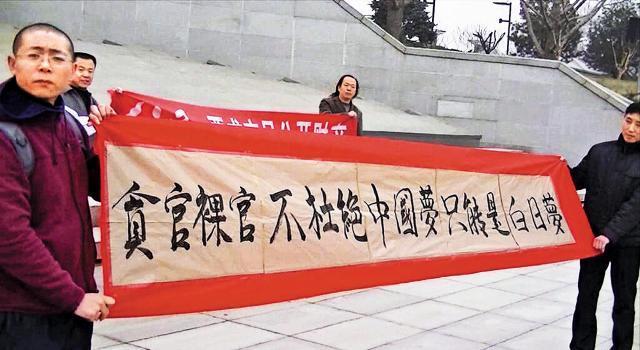 貪官裸官不杜絕中國夢只能是白日夢